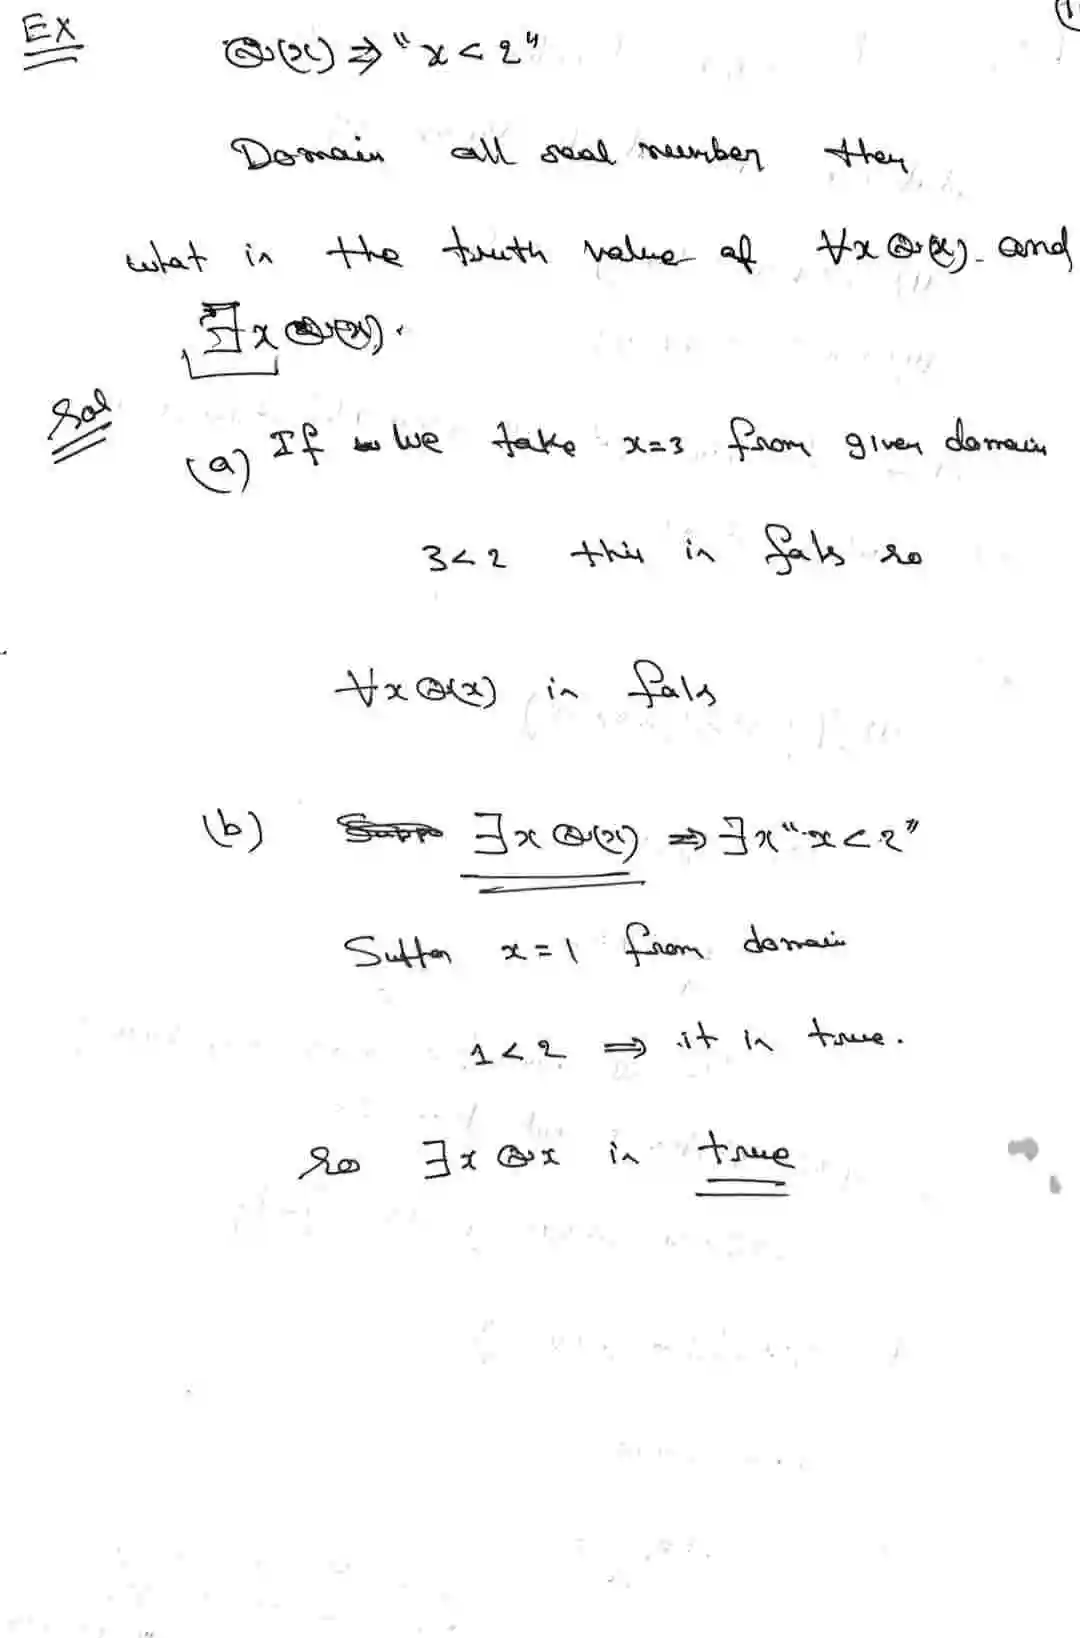 Ex
Q(x) ⇒ "x < 2"
Domain all real number then
what is the truth value of ∀x Q(x) and
∃x Q(x).
Sol
(a) If we take x=3 from given domain
3<2 this is fals so
∀x Q(x) is fals
(b) ∃x Q(x) ⇒ ∃x "x < 2"
x = 1 from domain
1 < 2 ⇒ it is true.
so ∃x Qx is true